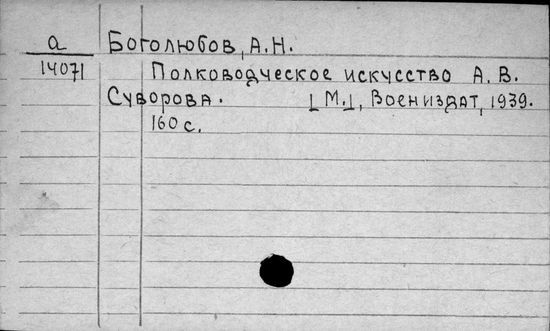 а Боголюбов, А.Н.
14071 Полководческое искусство А. В.
Суворова. [М.], Воениздат, 1939.
160 с.